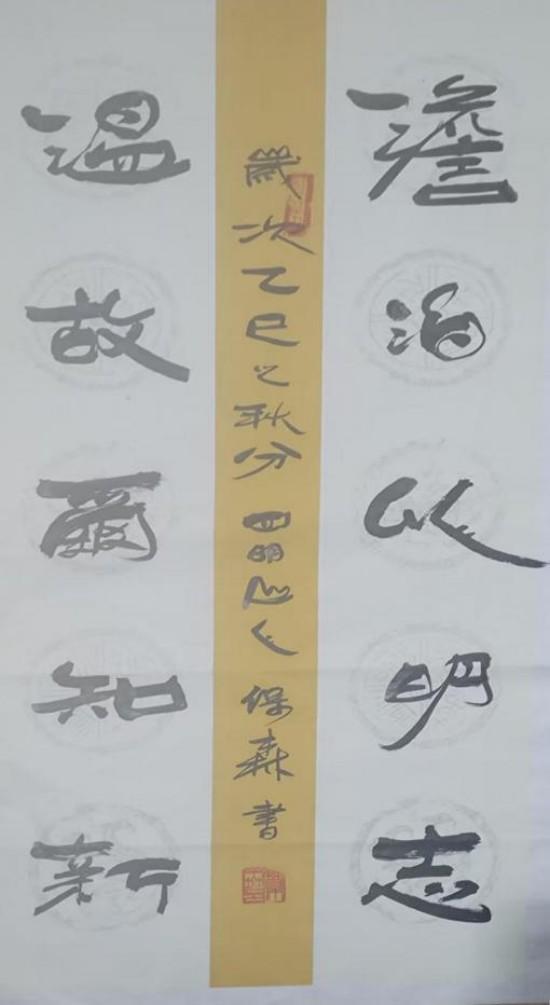 澹泊以明志
歲次乙巳之秋分 四明山人 保森書
溫故爾知新